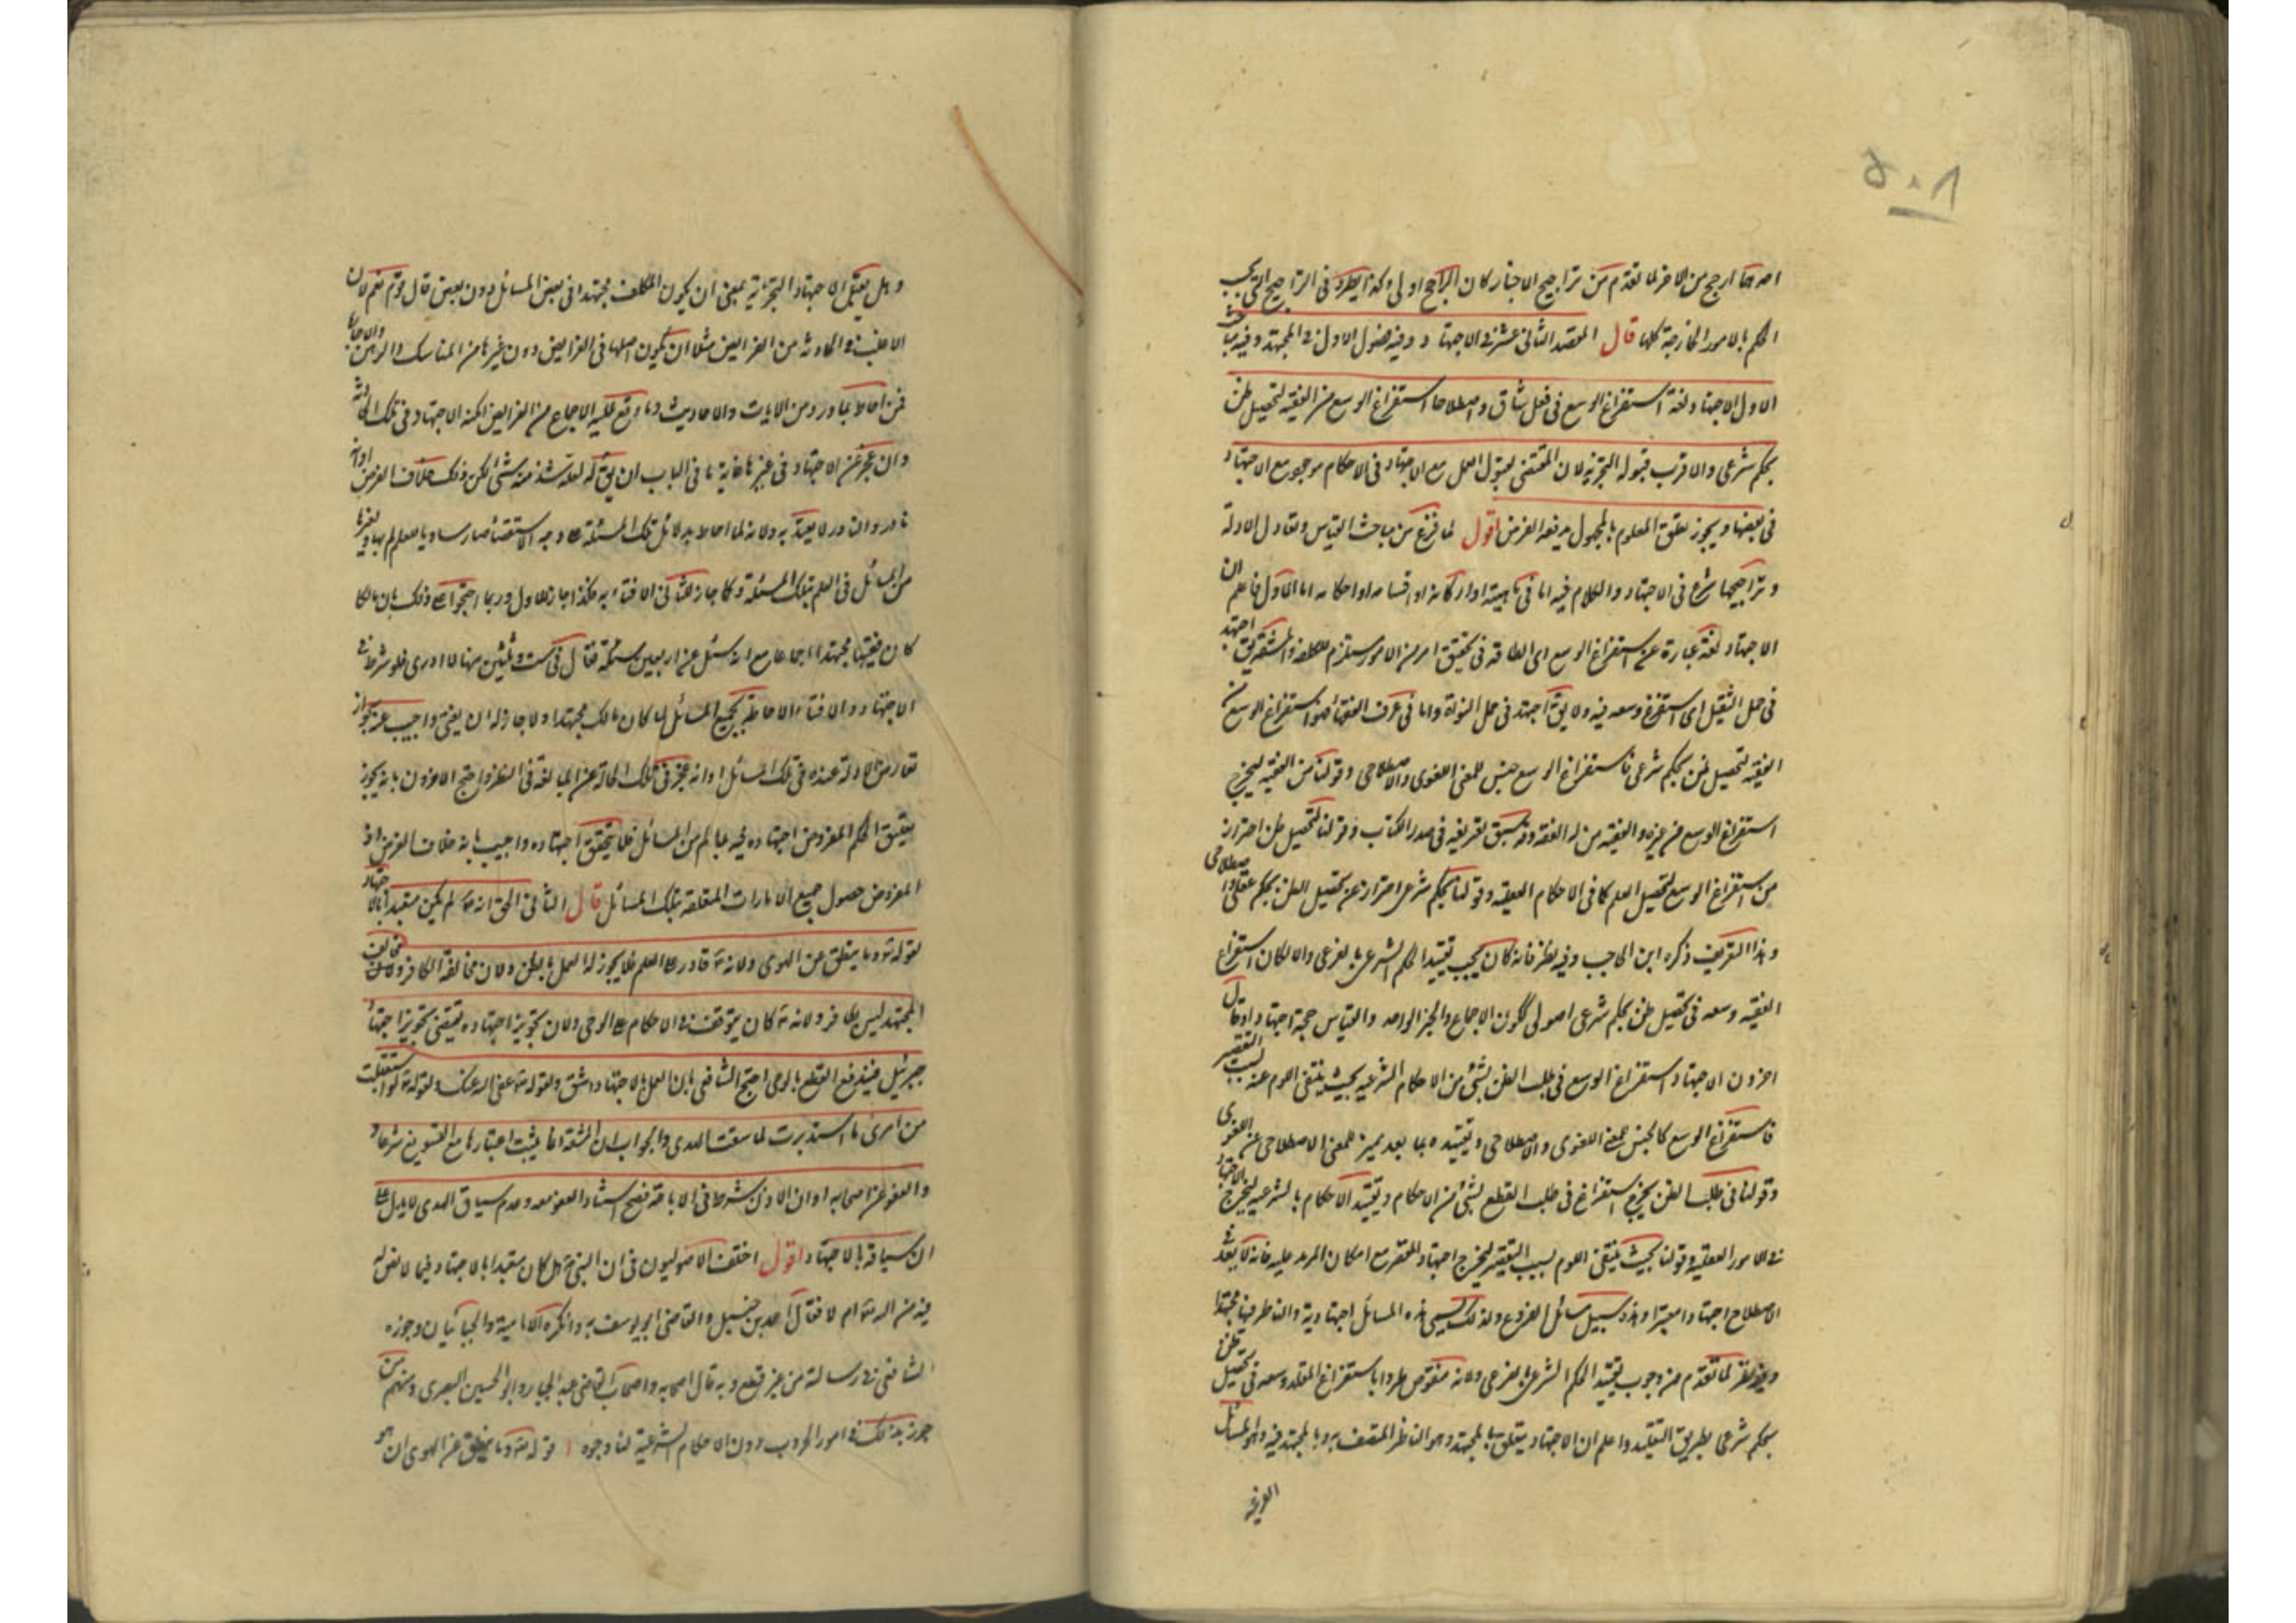 ٥٠٨
احدهما ارجح من الاخر لما تقدم من تراجيح الاخبار كان الراجح اولى وكذا يطرد في التراجيح التي بحسب
الحكم بالامور الخارجة كلها قال المقصد الثاني عشر في الاجتهاد وفيه فصول الاول في المجتهد وفيه مباحث
الاول الاجتهاد لغة استفراغ الوسع في فعل شاق واصطلاحا استفراغ الوسع من الفقيه لتحصيل ظن
بحكم شرعي والاقرب قبوله التجزية لان المقتضي لقبول العمل مع الاجتهاد في الاحكام موجود مع الاجتهاد
في بعضها ويجوز تعلق المعلوم بالمجهول يدفعه الفرض اقول لما فرغ من مباحث القياس وتعادل الادلة
وتراجيحها شرع في الاجتهاد والكلام فيه اما في ماهيته او اركانه او اقسامه او احكامه اما الاول فاعلم ان
الاجتهاد لغة عبارة عن استفراغ الوسع اى الطاقة في تحقيق امر من الامور مستلزم للكلفة والمشقة يق اجتهد
في حمل الثقيل اى استفرغ وسعه فيه ولا يق اجتهد في حمل النواة واما في عرف الفقهاء فهو استفراغ الوسع من
الفقيه لتحصيل ظن بحكم شرعي فاستفراغ الوسع جنس للمعنى اللغوى والاصطلاحى وقولنا من الفقيه ليخرج
استفراغ الوسع من غيره والفقيه من له الفقه وقد سبق تعريفه في صدر الكتاب وقولنا لتحصيل ظن احتراز
من استفراغ الوسع لتحصيل العلم كما في الاحكام العقلية وقولنا بحكم شرعي احتراز عن تحصيل الظن بحكم عقلي او اصطلاحى
وهذا التعريف ذكره ابن الحاجب وفيه نظر فانه كان يجب تقييد الحكم الشرعي بالفرعى والا لكان استفراغ
الفقيه وسعه في تحصيل ظن بحكم شرعي اصولى ككون الاجماع والخبر الواحد والقياس حجة اجتهادا وقال
اخرون الاجتهاد استفراغ الوسع في طلب الظن بشئ من الاحكام الشرعية بحيث ينتفى اللوم عنه بسبب التقصير
فاستفراغ الوسع كالجنس للمعنى اللغوى والاصطلاحى وتقييده بما بعد يميز المعنى الاصطلاحى عن اللغوى
وقولنا في طلب الظن يخرج استفراغ في طلب القطع بشئ من الاحكام وتقييد الاحكام بالشرعية ليخرج الاجتهاد
في الامور العقلية وقولنا بحيث ينتفى اللوم بسبب التقصير ليخرج اجتهاد المقصر مع امكان المزيد عليه فانه لا يعد في
الاصطلاح اجتهادا معتبرا وهذه سبيل مسائل الفروع ولذلك يسمى هذه المسائل اجتهادية والناظر فيها مجتهدا
وفيه نظر لما تقدم من وجوب تقييد الحكم الشرعي بالفرعى ولانه منقوض طردا باستفراغ المقلد وسعه في تحصيل ظن
بحكم شرعي بطريق التقليد واعلم ان الاجتهاد يتعلق بالمجتهد وهو الناظر المتصف به وبالمجتهد فيه وهو المسائل
الفرعية
وهل يقبل الاجتهاد التجزية بمعنى ان يكون المكلف مجتهدا في بعض المسائل دون بعض قال قوم نعم لان
الاغلب في الحادثة من الفرايض مثلا ان يكون اصلها في الفرايض دون غيرها من المناسك والرهن والاجارة
فمن احاط بما ورد من الايات والاحاديث وما وقع عليه الاجماع من الفرايض امكنه الاجتهاد في تلك الحادثة
وان عجز عن الاجتهاد في غيرها غاية ما في الباب ان يق له لعله شذ منه شئ لكن ذلك خلاف الفرض او انه
نادر والنادر لا يعتد به ولانه لما احاط بدلائل تلك المسئلة على وجه الاستقصاء صار مساويا للعالم بها وبغيرها
من المسائل في العلم بتلك المسئلة وكما جاز للثاني الافتاء به فكذا جاز للاول وربما احتجوا على ذلك بان مالكا
كان فقيها مجتهدا اجماعا مع انه سئل عن اربعين مسئلة فقال في ست وثلثين منها لا ادرى فلو شرط في
الاجتهاد والافتاء الاحاطة بجميع المسائل لما كان مالك مجتهدا ولا جاز له ان يفتى واجيب عنه بجواز
تعارض الادلة عنده في تلك المسائل او انه عجز في تلك الحالة عن المبالغة في النظر واحتج الاخرون بانه يجوز
تعلق الحكم المفروض اجتهاده فيه بما لم من المسائل فلا يتحقق اجتهاده واجيب بانه خلاف الفرض اذ
المفروض حصول جميع الامارات المتعلقة بتلك المسائل قال الثاني الحق انه ع لم يكن متعبدا بالاجتهاد
لقوله تع وما ينطق عن الهوى ولانه ع قادر على العلم فلا يجوز له العمل بالظن ولان مخالفه كافر ومخالف
المجتهد ليس بكافر ولانه ع كان يتوقف في الاحكام على الوحى ولان تجويز اجتهاده يقتضى تجويز اجتهاد
جبرئيل فيندفع القطع بالوحى احتج الشافعى بان العمل بالاجتهاد اشق ولقوله تع عفى الله عنك ولقوله ع لو استقبلت
من امرى ما استدبرت لما سقت الهدى والجواب ان المشقة انما يثبت اعتبارها مع التسويغ شرعا
والعفو عن اصحابه او ان الاذن شرط في الاباحة فصح استناد العفو معه وعدم سياق الهدى لا يدل على
ان سياقه بالاجتهاد اقول اختلف الاصوليون في ان النبى ع هل كان متعبدا بالاجتهاد فيما لا نص له
فيه من الله تع ام لا فقال احمد بن حنبل والقاضى ابو يوسف به وانكره الامامية والجبائيان وجوزه
الشافعى في رسالته من غير قطع وبه قال اصحابه واصحاب القاضى عبد الجبار وابو الحسين البصرى ومنهم من
جوز ذلك في امور الحروب دون الاحكام الشرعية لنا وجوه ا قوله تع وما ينطق عن الهوى ان هو